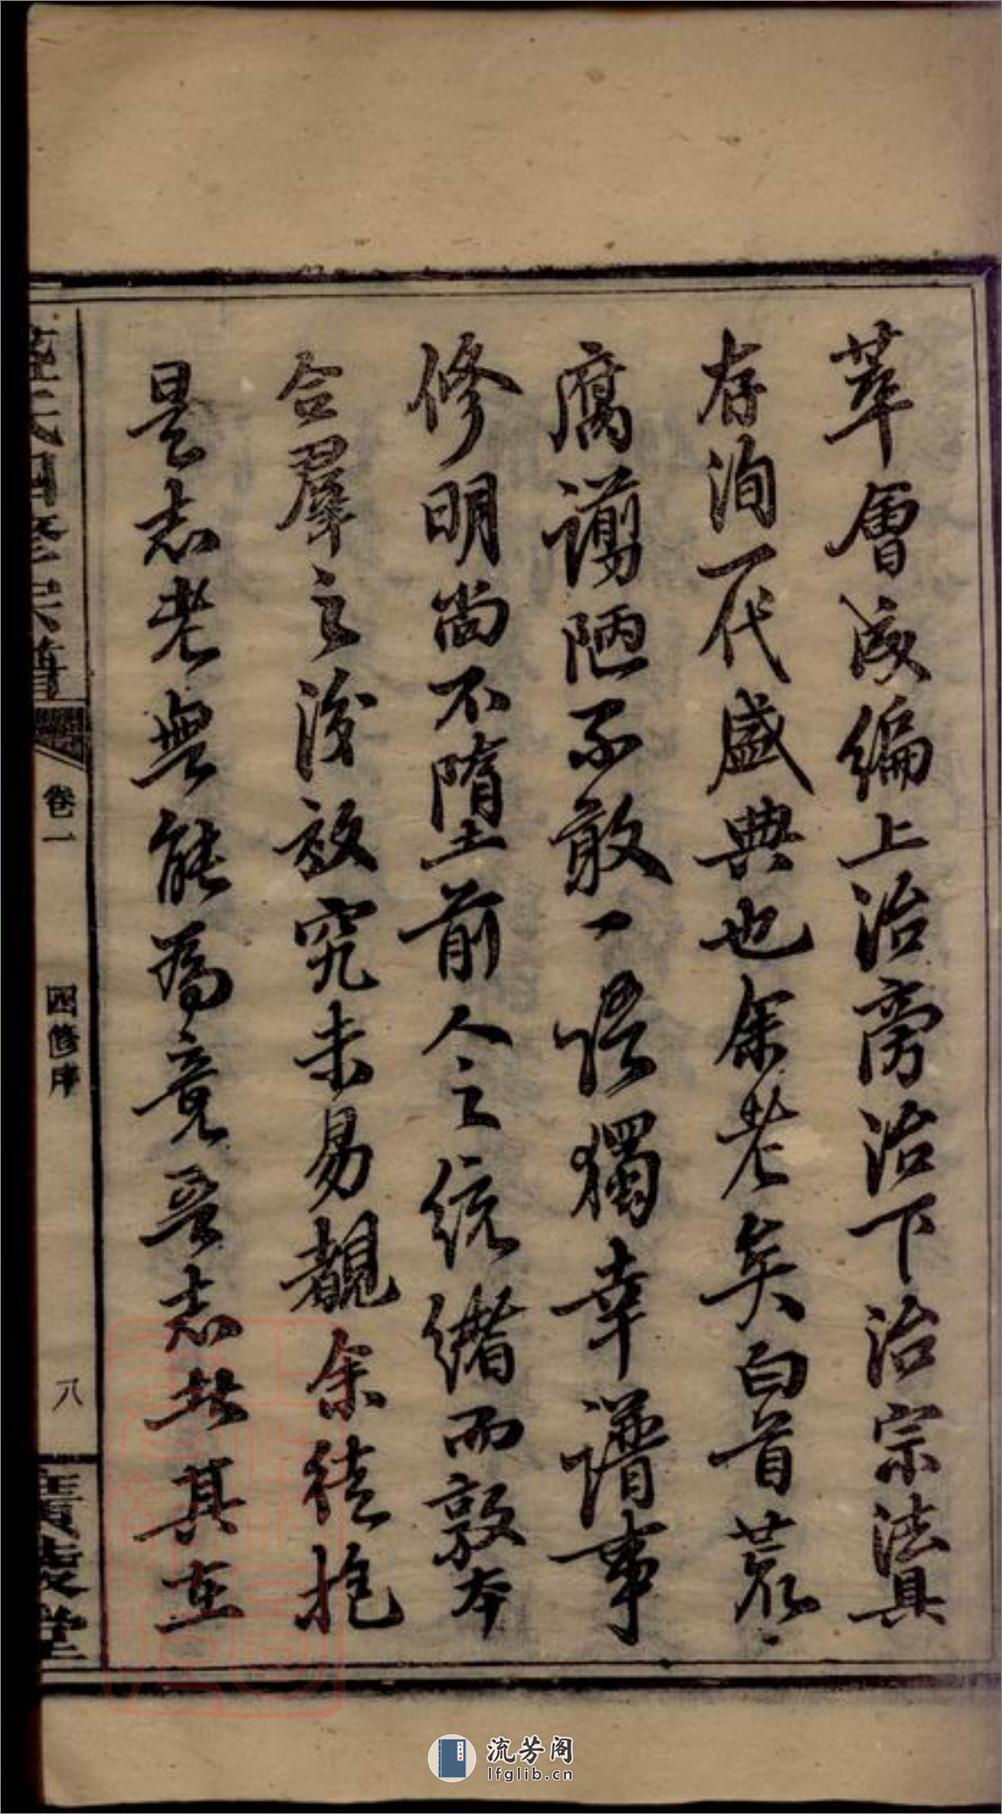 萃會成編上治旁治下治宗法具
存洵一代盛典也余老矣白首荒
腐謭陋不敢一語獨幸譜事
修明尚不墮前人之統緒而敦本
合羣之後效究未易覩余徒抱
是志老無能為竟吾志者其在
氏四修宗譜
卷一
四修序
八
堂
流芳阁
lfglib.cn